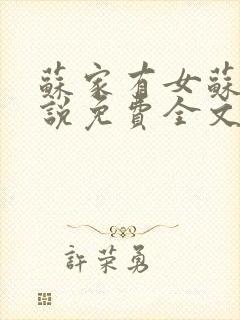 蘇家有女蘇
說免費全文
許荣勇